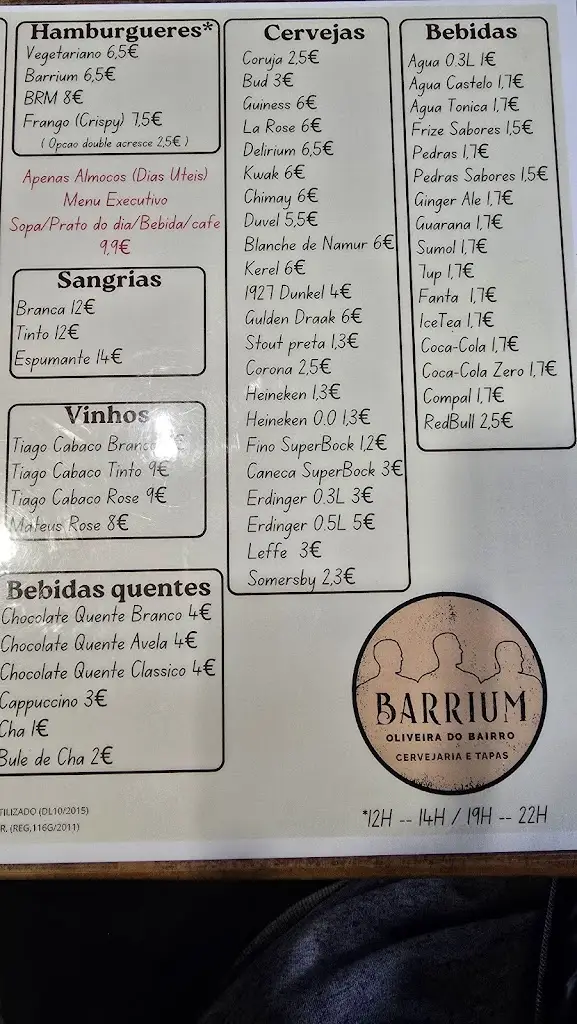 Hamburgueres*
Vegetariano 6,5€
Barrium 6,5€
BRM 8€
Frango (Crispy) 7,5€
( Opcao double acresce 2,5€ )
Apenas Almocos (Dias Uteis)
Menu Executivo
Sopa/Prato do dia/Bebida/cafe
9,9€
Sangrias
Branca 12€
Tinto 12€
Espumante 14€
Vinhos
Tiago Cabaco Branco €
Tiago Cabaco Tinto 9€
Tiago Cabaco Rose 9€
Mateus Rose 8€
Bebidas quentes
Chocolate Quente Branco 4€
Chocolate Quente Avela 4€
Chocolate Quente Classico 4€
Cappuccino 3€
Cha 1€
Bule de Cha 2€
TILIZADO (DL10/2015)
R. (REG,116G/2011)
Cervejas
Coruja 2,5€
Bud 3€
Guiness 6€
La Rose 6€
Delirium 6,5€
Kwak 6€
Chimay 6€
Duvel 5,5€
Blanche de Namur 6€
Kerel 6€
1927 Dunkel 4€
Gulden Draak 6€
Stout preta 1,3€
Corona 2,5€
Heineken 1,3€
Heineken 0.0 1,3€
Fino SuperBock 1,2€
Caneca SuperBock 3€
Erdinger 0.3L 3€
Erdinger 0.5L 5€
Leffe 3€
Somersby 2,3€
Bebidas
Agua 0.3L 1€
Agua Castelo 1,7€
Agua Tonica 1,7€
Frize Sabores 1,5€
Pedras 1,7€
Pedras Sabores 1,5€
Ginger Ale 1,7€
Guarana 1,7€
Sumol 1,7€
7up 1,7€
Fanta 1,7€
IceTea 1,7€
Coca-Cola 1,7€
Coca-Cola Zero 1,7€
Compal 1,7€
RedBull 2,5€
BARRIUM
OLIVEIRA DO BAIRRO
CERVEJARIA E TAPAS
*12H -- 14H / 19H -- 22H